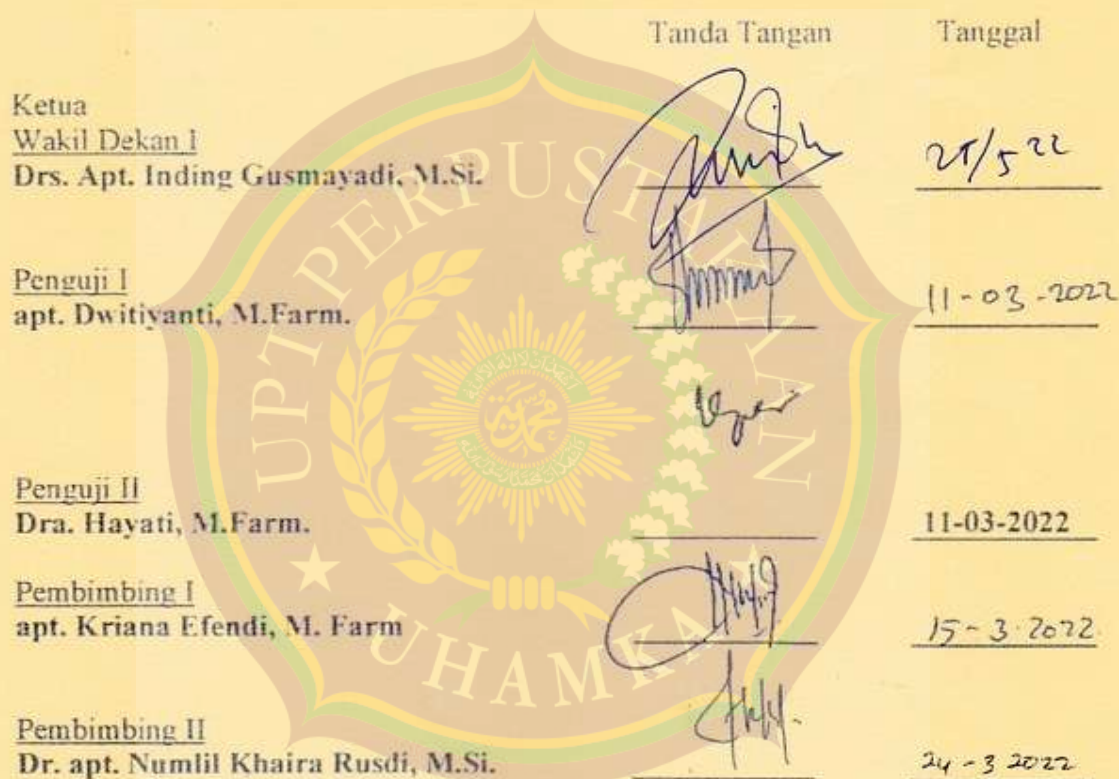 Tanda Tangan Tanggal
Ketua
Wakil Dekan I
Drs. Apt. Inding Gusmayadi, M.Si. 25/5 22
Penguji I
apt. Dwitiyanti, M.Farm. 11-03-2022
Penguji II
Dra. Hayati, M.Farm. 11-03-2022
Pembimbing I
apt. Kriana Efendi, M. Farm 15-3-2022
Pembimbing II
Dr. apt. Numlil Khaira Rusdi, M.Si. 24-3 2022
UPT PERPUSTAKAAN
UHAMKA